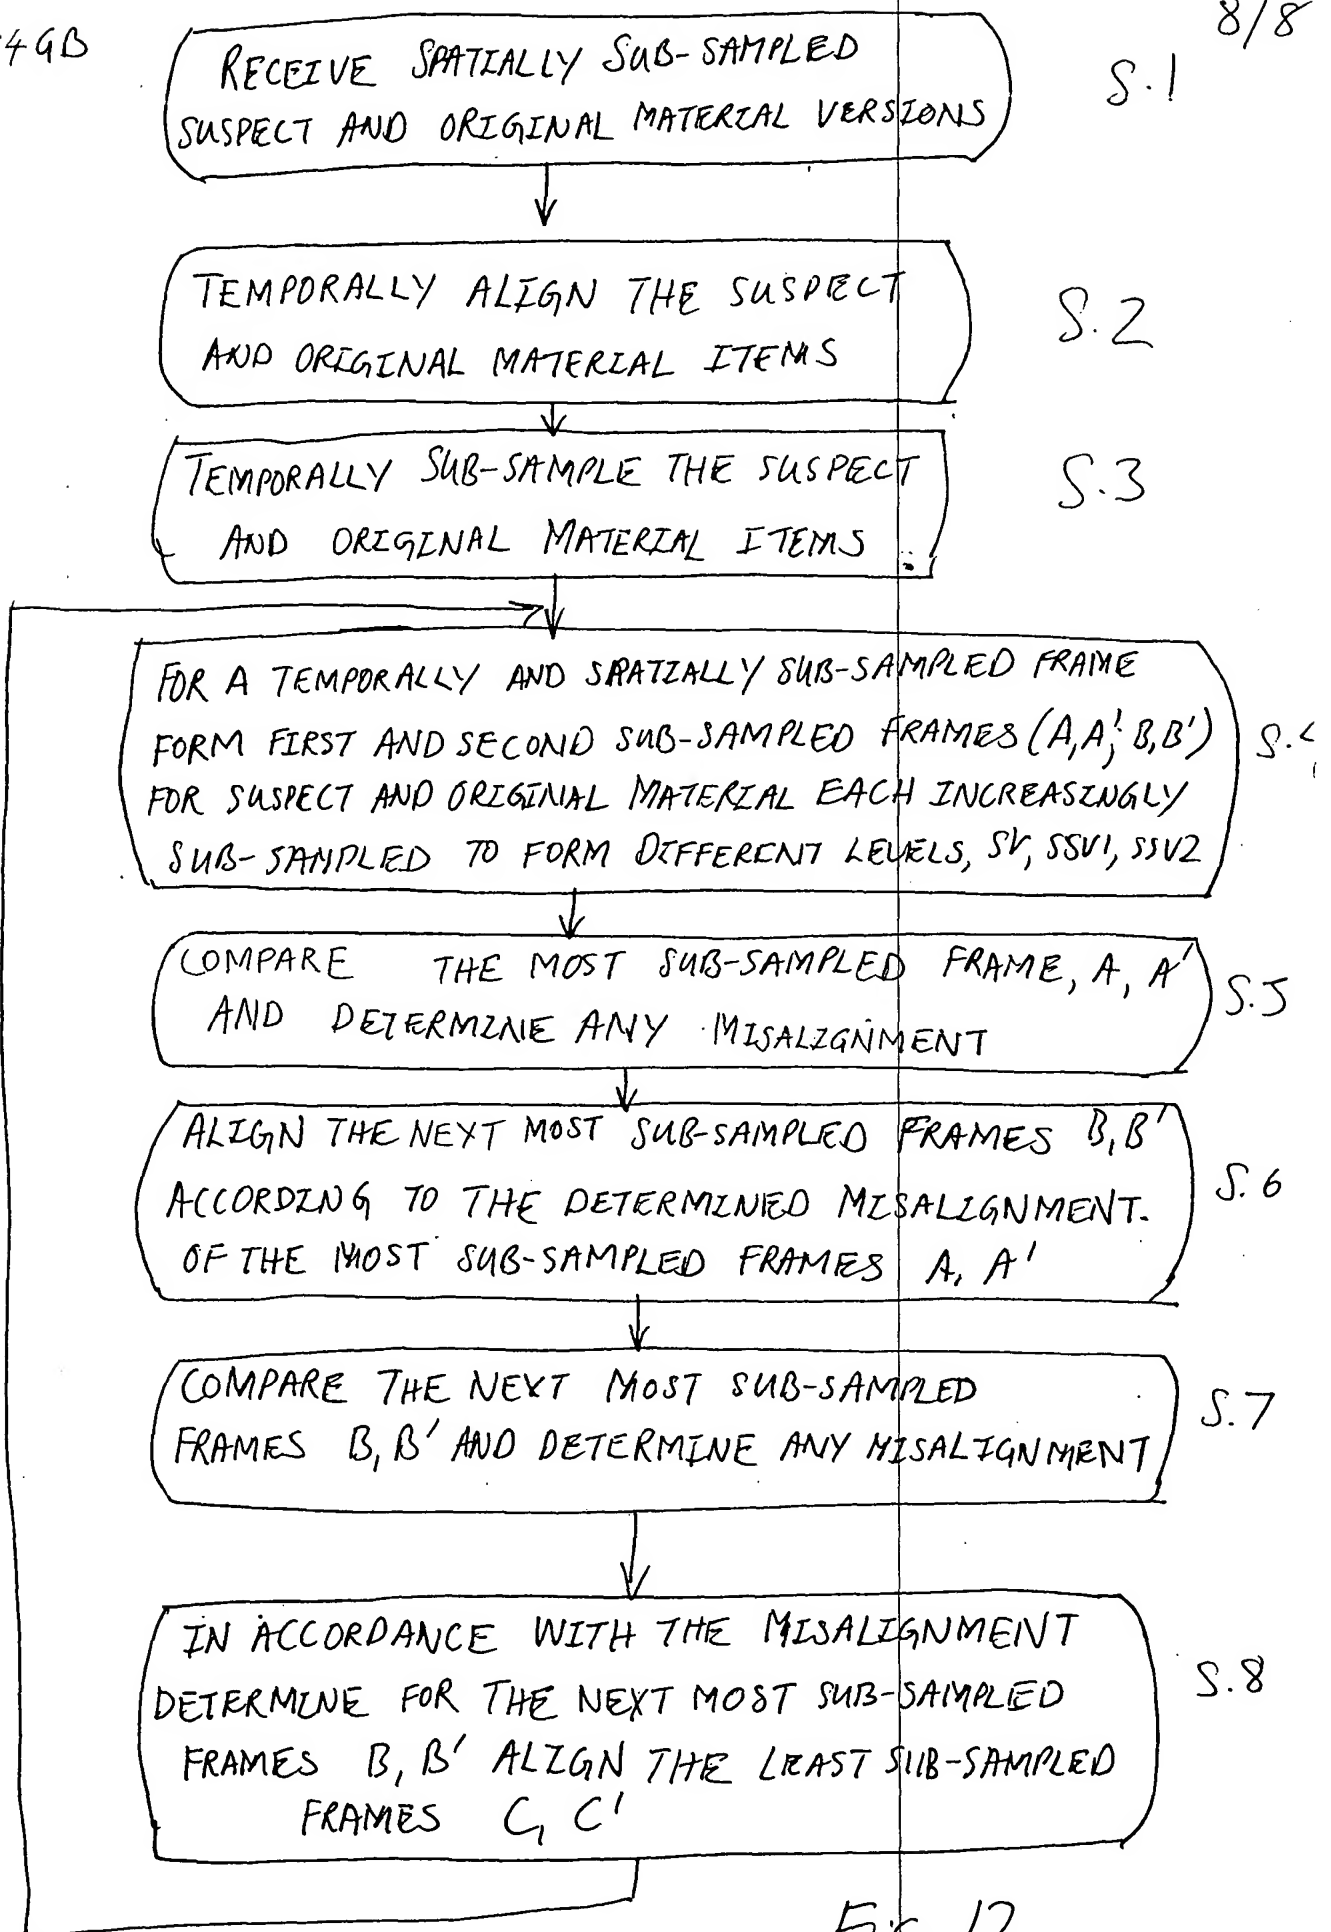 4GB
8/8
RECEIVE SPATIALLY SUB-SAMPLED
SUSPECT AND ORIGINAL MATERIAL VERSIONS
S.1
TEMPORALLY ALIGN THE SUSPECT
AND ORIGINAL MATERIAL ITEMS
S.2
TEMPORALLY SUB-SAMPLE THE SUSPECT
AND ORIGINAL MATERIAL ITEMS
S.3
FOR A TEMPORALLY AND SPATIALLY SUB-SAMPLED FRAME
FORM FIRST AND SECOND SUB-SAMPLED FRAMES (A,A'; B,B')
FOR SUSPECT AND ORIGINAL MATERIAL EACH INCREASINGLY
SUB-SAMPLED TO FORM DIFFERENT LEVELS, SV, SSV1, SSV2
COMPARE THE MOST SUB-SAMPLED FRAME, A, A'
AND DETERMINE ANY MISALIGNMENT
S.5
ALIGN THE NEXT MOST SUB-SAMPLED FRAMES B,B'
ACCORDING TO THE DETERMINED MISALIGNMENT.
OF THE MOST SUB-SAMPLED FRAMES A, A'
S.6
COMPARE THE NEXT MOST SUB-SAMPLED
FRAMES B,B' AND DETERMINE ANY MISALIGNMENT
S.7
IN ACCORDANCE WITH THE MISALIGNMENT
DETERMINE FOR THE NEXT MOST SUB-SAMPLED
FRAMES B,B' ALIGN THE LEAST SUB-SAMPLED
FRAMES C, C'
S.8
Fig 12